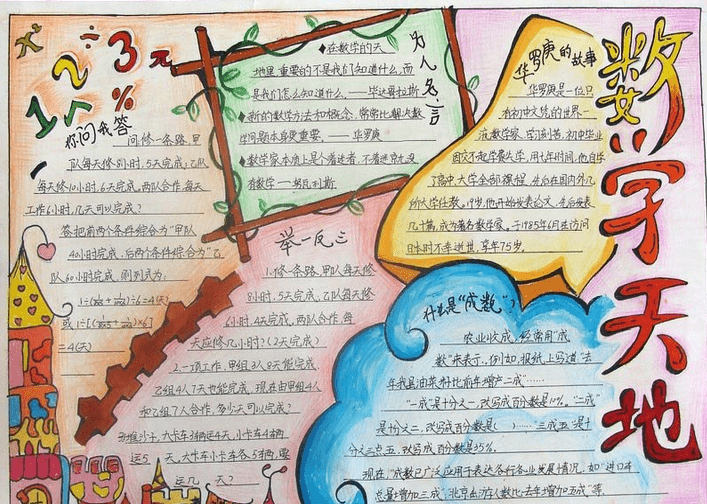 数学天地
x² ÷ 1 2 3 元 %
你问我答
问修一条路，甲
队每天修8小时，5天完成；乙队
每天修10小时，6天完成，两队合作，每天
工作6小时，几天可以完成？
答把前两个条件综合为“甲队
40小时完成，后两个条件综合“乙
队60小时完成 则列式为：
=4(天)
◆在数学的天
地里，重要的不是我们知道什么，而
是我们怎么知道什么。——毕达哥拉斯
◆新的数学方法和概念，常常比解决数
学问题本身更重要。——华罗庚
◆数学家本质上是个着迷者，不着迷就没
有数学——努瓦利斯
名言
华罗庚的故事
华罗庚是一位只
有初中文凭的世界一
流数学家，学习刻苦，初中毕业
因交不起学费失学，用七年时间，他自学
了高中、大学全部课程，先后在国内外几
所大学任教，19岁，他开始发表论文，先后发表
几十篇，成为著名数学家。于1985年6月去访问
日本时不幸逝世，享年75岁。
举一反三
1、修一条路，甲队每天修
8小时，5天完成，乙队每天修
6小时，4天完成，两队合作，每
天应修几小时？（2天完成）
2.一项工作，甲组3人8天能完成
乙组4人7天也能完成，现在由甲组4人
和乙组7人合作，多少天可以完成？
沙，大卡车3辆运4天，小卡车4辆
运5天，大卡车小卡车各5辆，要
运几天？
什么是“成数”？
农业收成，经常用“成
数”来表示，例如，报纸上写道“去
年我县油菜籽比前年增产二成”……
“一成”是十分之一，改写成百分数是10%。“二成”
是十分之二，改写成百分数是（ ）……“三成五”是十
分之三点五，改写成百分数是35%。
现在，“成数”已广泛应用于表达各行各业发展情况，如“进口车
总量增加三成”“北京出游人数比去年增加五成”等